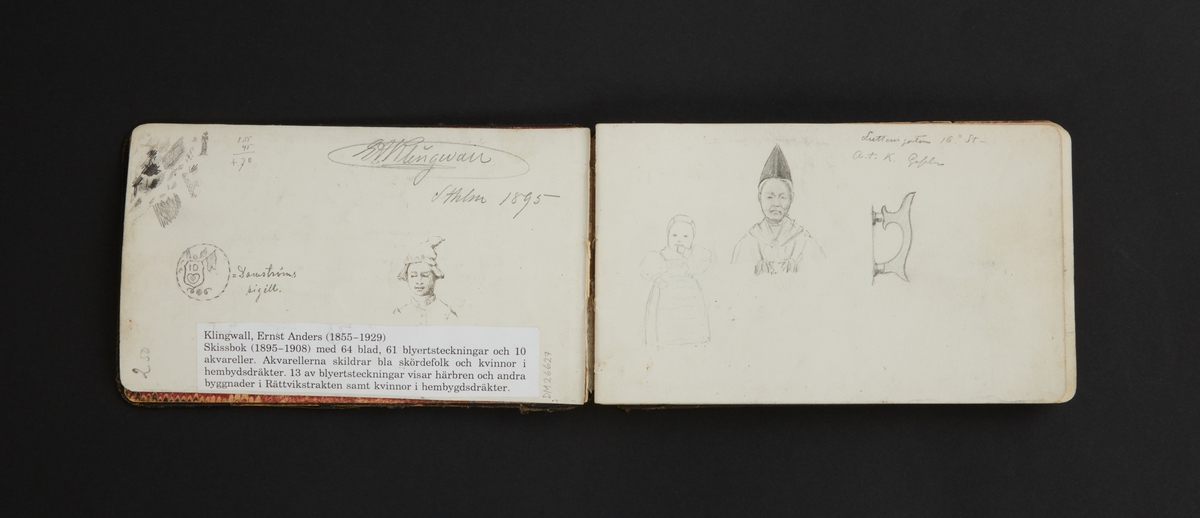 E A Klingwall
Sthlm 1895
= Domströms
sigill.
Klingwall, Ernst Anders (1855–1929)
Skissbok (1895–1908) med 64 blad, 61 blyertsteckningar och 10
akvareller. Akvarellerna skildrar bla skördefolk och kvinnor i
hembydsdräkter. 13 av blyertsteckningar visar härbren och andra
byggnader i Rättvikstrakten samt kvinnor i hembygdsdräkter.
250
DM26627
16